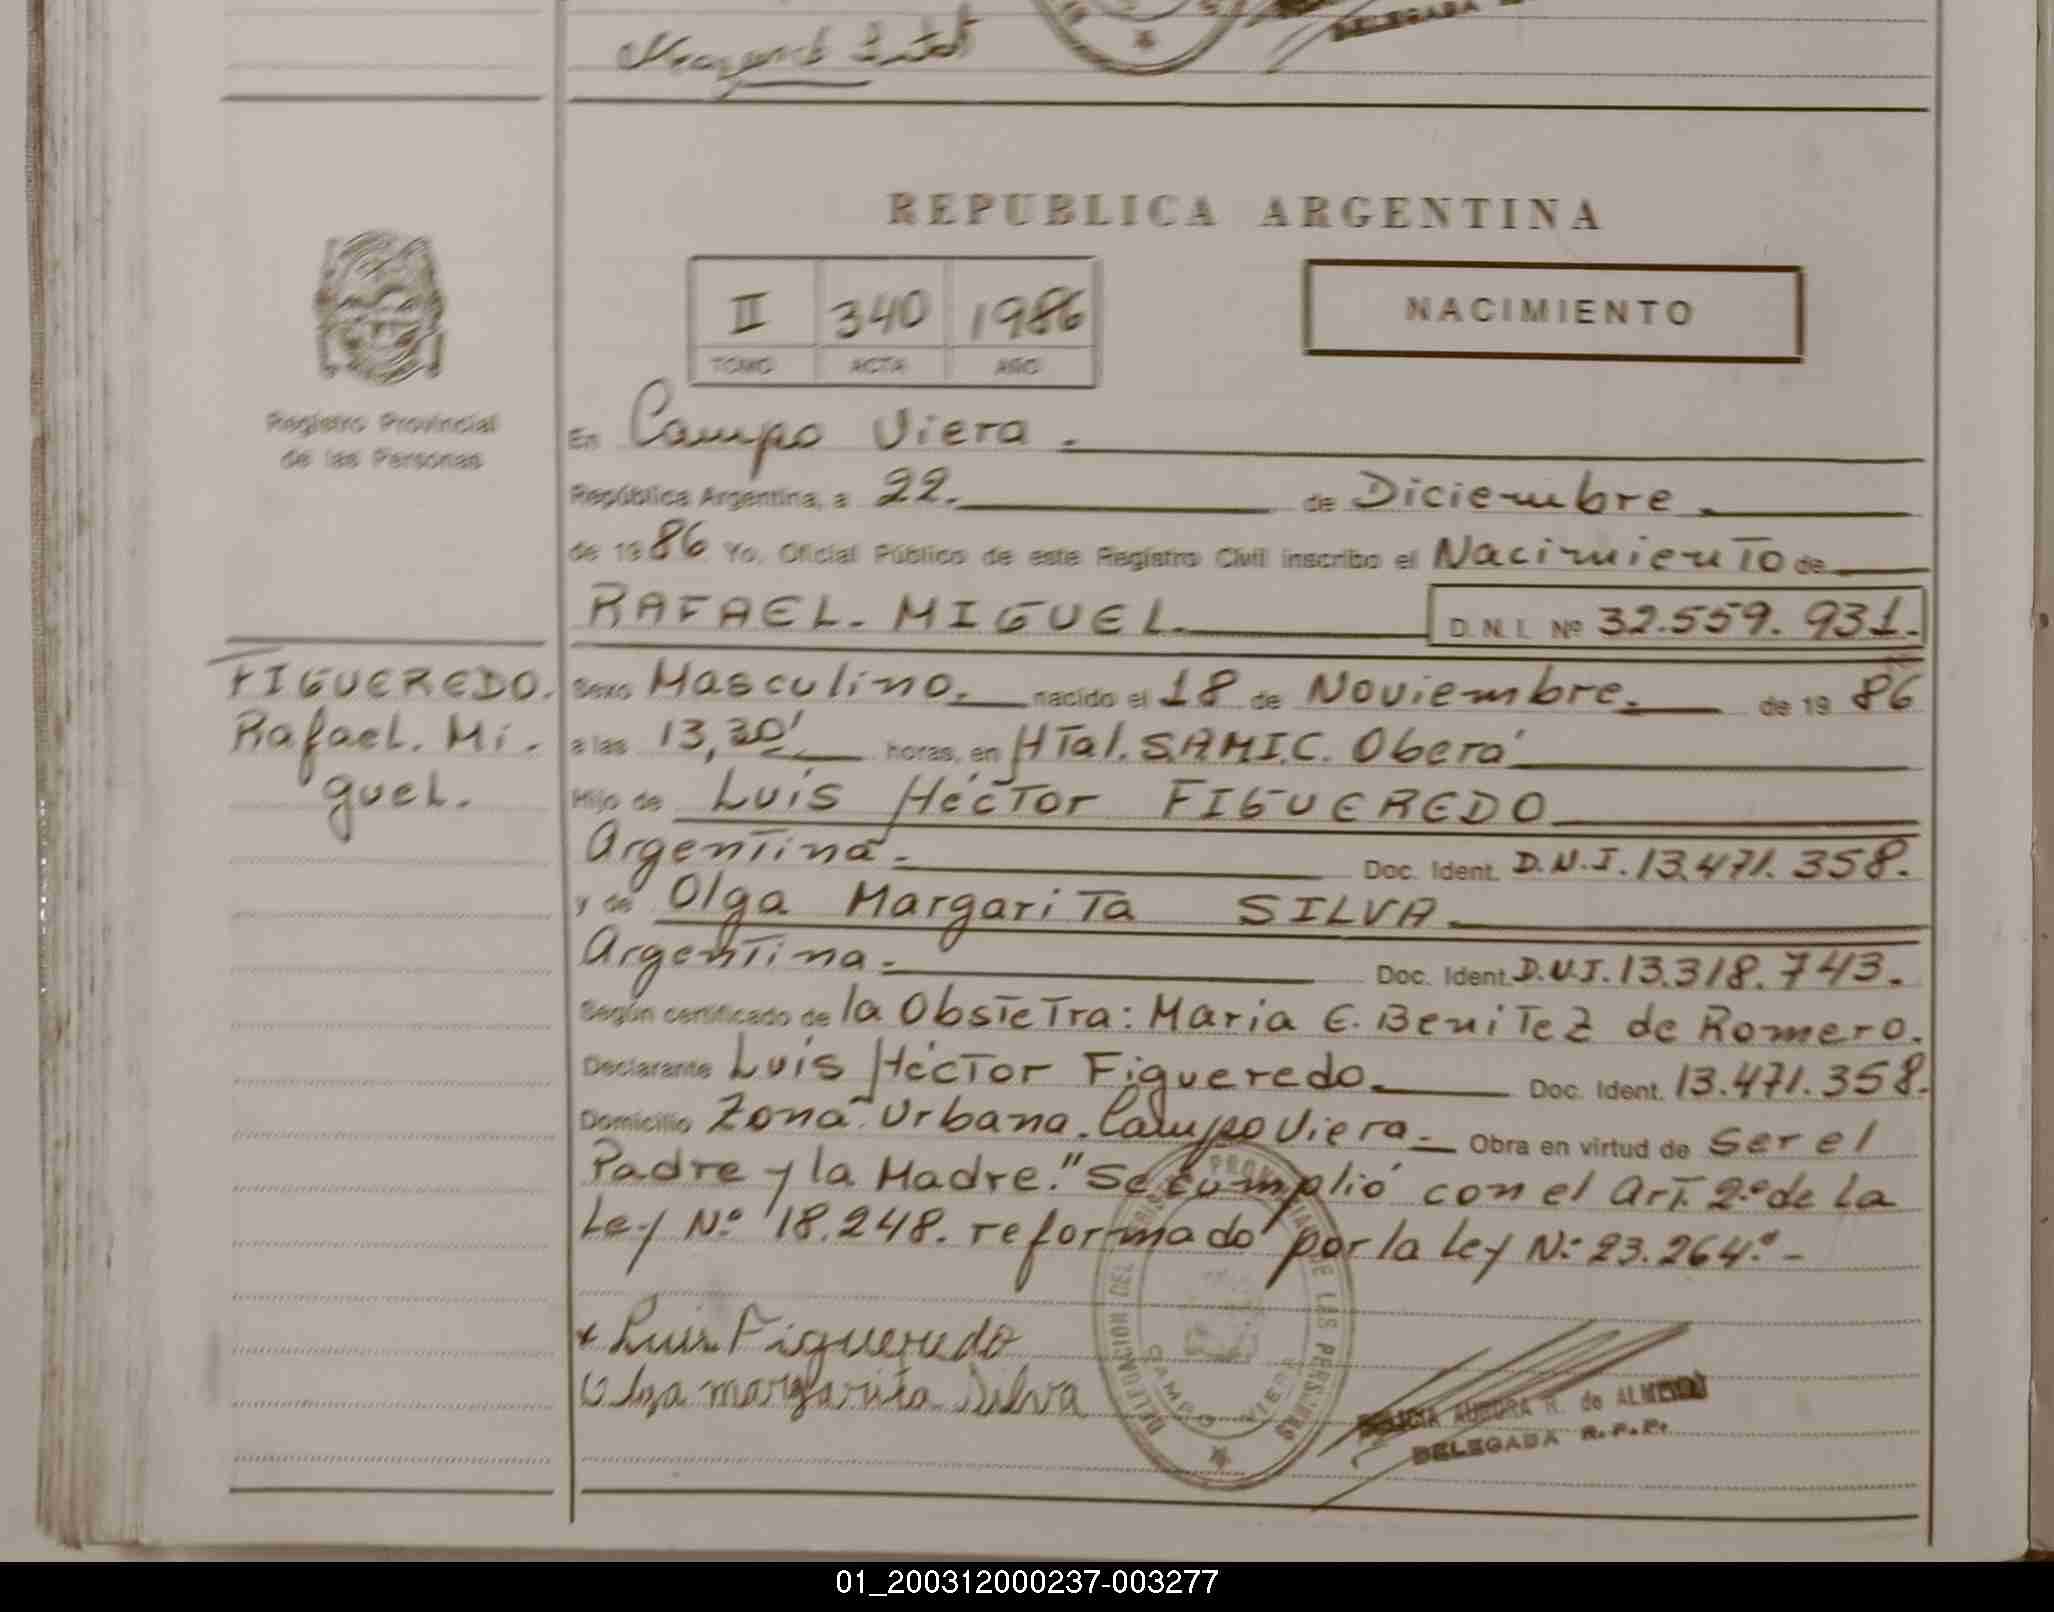 DELEGADA
REPUBLICA ARGENTINA
II 340 1986
TOMO ACTA AÑO
NACIMIENTO
Registro Provincial
de las Personas
En Campo Viera.
República Argentina, a 22. de Diciembre.
de 1986 Yo, Oficial Público de este Registro Civil inscribo el Nacimiento de
RAFAEL. MIGUEL. D.N.I. Nº 32.559.931.
FIGUEREDO.
Rafael. Mi.
guel.
Sexo Masculino. nacido el 18 de Noviembre. de 19 86
a las 13,30' horas, en HTal. S.A.M.I.C. Oberá
Hijo de Luis Héctor FIGUEREDO
Argentina. Doc. Ident. D.N.I. 13.471.358.
y de Olga Margarita SILVA.
Argentina. Doc. Ident. D.N.I. 13.318.743.
Según certificado de la Obstetra: Maria E. Benitez de Romero.
Declarante Luis Héctor Figueredo. Doc. Ident. 13.471.358.
Domicilio Zona Urbana. Campo Viera. Obra en virtud de Ser el
Padre y la Madre. "Se cumplió con el Art. 2º de la
Ley Nº 18.248. reformado por la Ley Nº 23.264". -
Luis Figueredo
Olga margarita Silva
DELEGACION DEL REGISTRO PROVINCIAL DE LAS PERSONAS
CAMPO VIERA
AURORA R. de ALMEIDA
DELEGADA R.P.P.
01_200312000237-003277